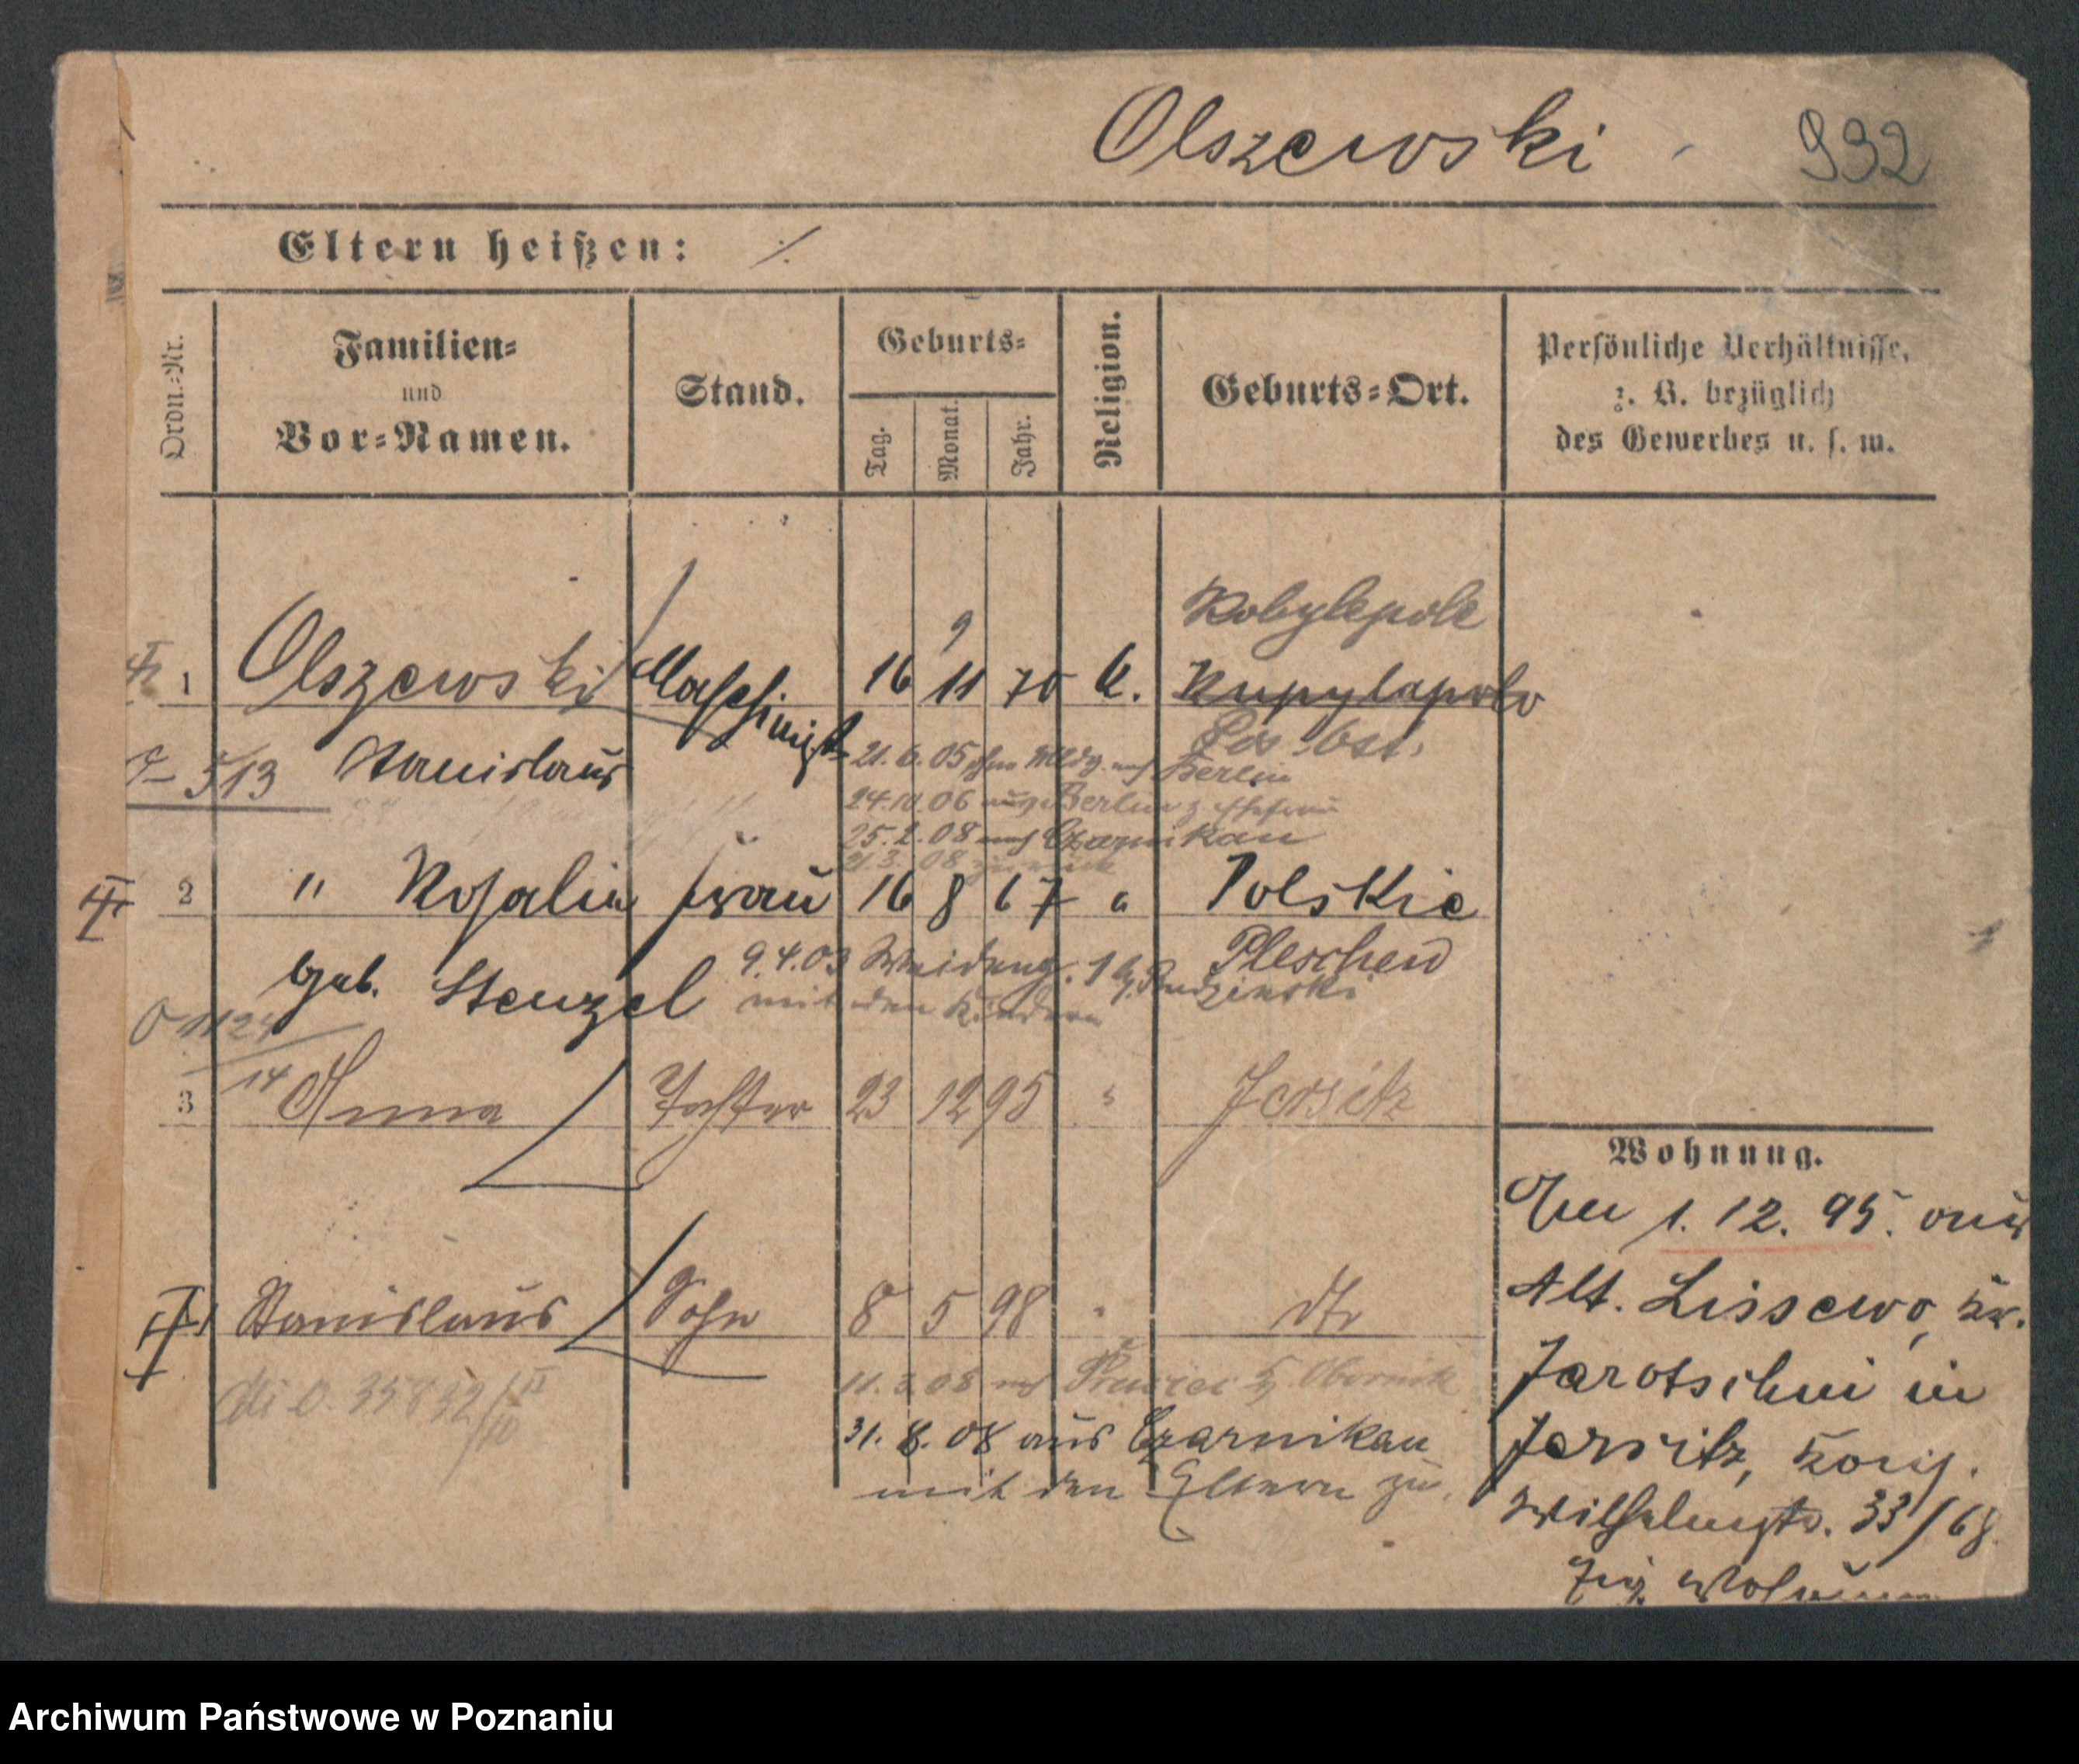 Olszewski 932
Eltern heißen: ./.
Ordn.=Nr.
Familien=
und
Vor=Namen.
Stand.
Geburts=
Tag.
Monat.
Jahr.
Religion.
Geburts=Ort.
Persönliche Verhältnisse,
z. B. bezüglich
des Gewerbes u. s. w.
Kobylepole
9
1 Olszewski Maschinist 16 11 70 k. Kupylapolo
Pos. Ost.
513 Stanislaus
21.6.05 ohne Meldg. nach Berlin
24.10.06 aus Berlin z. Ehefrau
25.2.08 nach Czarnikau
21.3.08 zurück
2 " Rosalie Frau 16 8 67 " Polskie
Pleschew
geb. Stenzel
9.4.03 Weideng. 1 b. Rudzinski
mit den Kindern
O 1124
14
3 Anna Tochter 23 12 95 " Jersitz
Stanislaus Sohn 8 5 98 " dto
O. 35832
11.3.08 nach
31.8.08 aus Czarnikau
mit den Eltern zu.
Wohnung.
Am 1.12.95. aus
Alt. Lissewo, Kr.
Jarotschin in
Jersitz, König.
Wilhelmstr. 33/68.
Zug. Wohnung
Archiwum Państwowe w Poznaniu